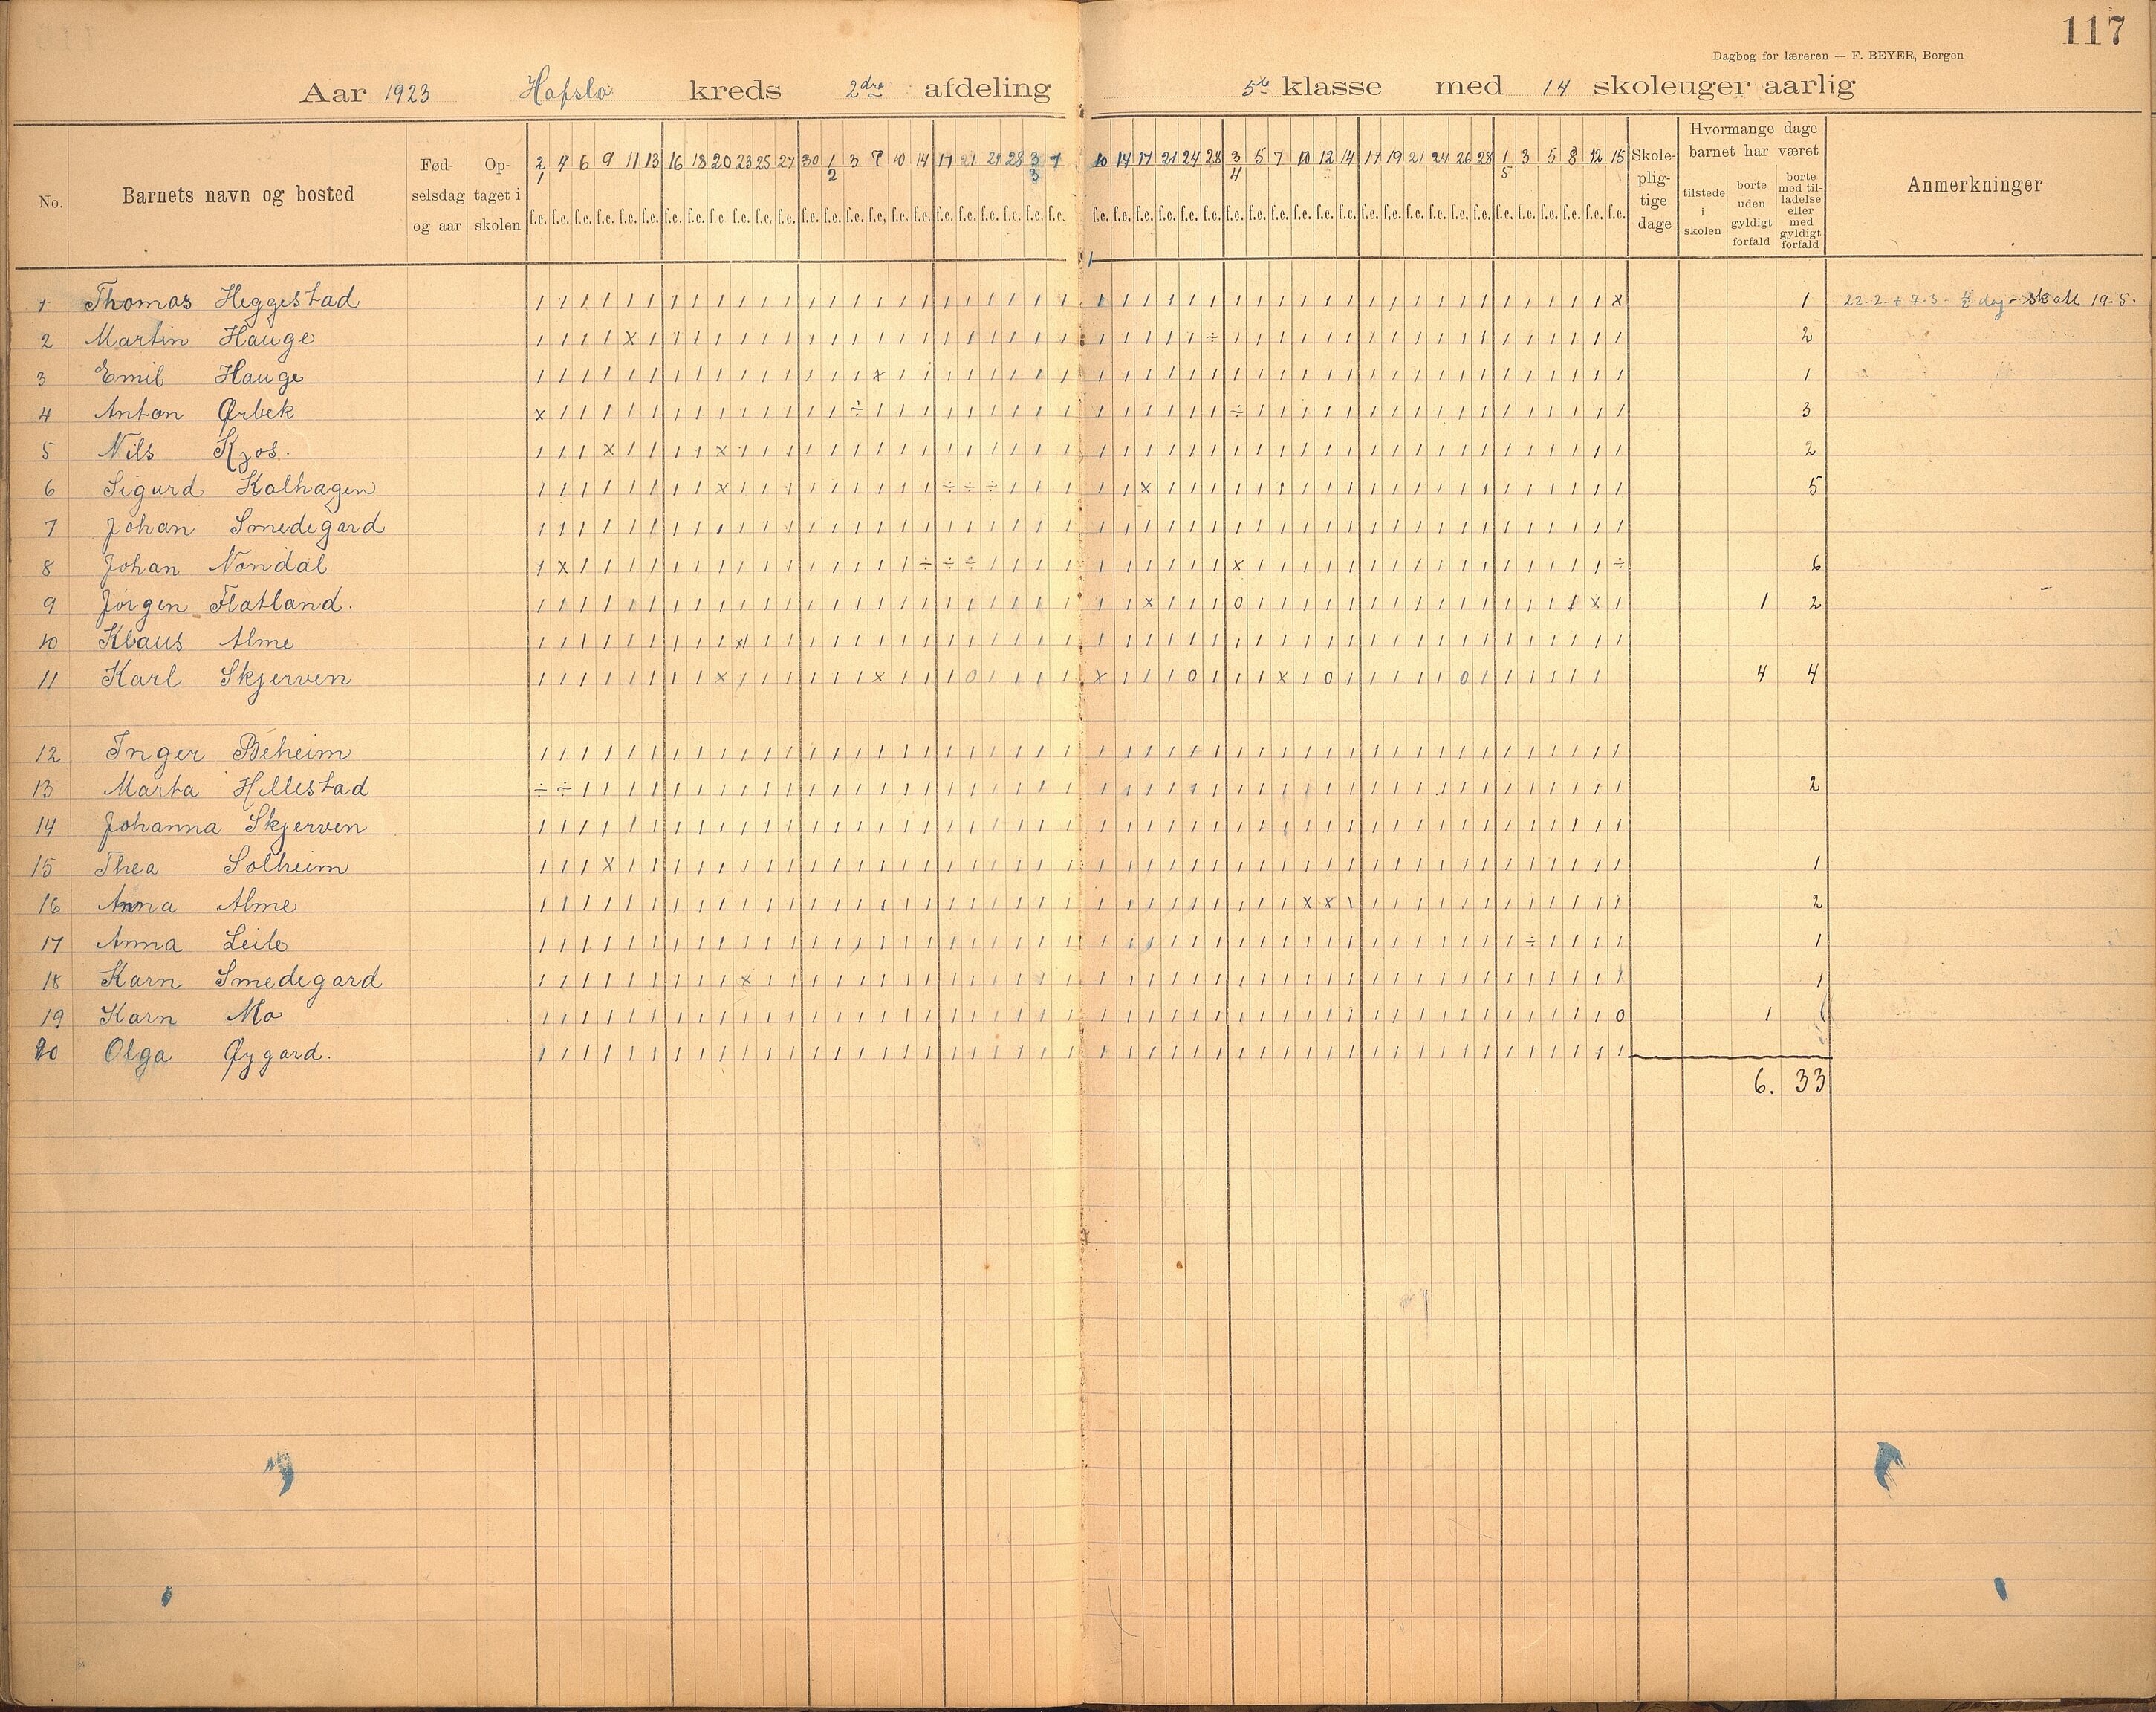 117
Dagbog for læreren — F. BEYER, Bergen
Aar 1923 Hafslo kreds 2dre afdeling 5te klasse med 14 skoleuger aarlig
No. Barnets navn og bosted Fødselsdag og aar Optaget i skolen 2/1 4 6 9 11 13 16 18 20 23 25 27 30 1/2 3 7 10 14 17 21 24 28 3/3 7 10 14 17 21 24 28 3/4 5 7 10 12 14 17 19 21 24 26 28 1/5 3 5 8 12 15 Skolepligtige dage Hvormange dage barnet har været Anmerkninger
f.e. f.e. f.e. f.e. f.e. f.e. f.e. f.e. f.e f.e. f.e. f.e. f.e. f.e. f.e. f.e. f.e. f.e. f.e. f.e. f.e. f.e. f.e. f.e. f.e. f.e. f.e. f.e. f.e. f.e. f.e. f.e. f.e. f.e. f.e. f.e. f.e. f.e. f.e. f.e. f.e. f.e. f.e. f.e. f.e. f.e. f.e. f.e. tilstede i skolen borte uden gyldigt forfald borte med tilladelse eller med gyldigt forfald
1 Thomas Heggestad / / / / / / / / / / / / / / / / / / / / / / / / / / / / / / / / / / / / / / / / / / / / / / / x 1 22-2 + 7-3 - dag - 19-5.
2 Martin Hauge / / / / x / / / / / / / / / / / / / / / / / / / / / / / / ÷ / / / / / / / / / / / / / / / / / / 2
3 Emil Hauge / / / / / / / / / / / / / / / x / / / / / / / / / / / / / / / / / / / / / / / / / / / / / / / / 1
4 Anton Ørbek x / / / / / / / / / / / / / ÷ / / / / / / / / / / / / / / / ÷ / / / / / / / / / / / / / / / / / 3
5 Nils Kjos. / / / x / / / / x / / / / / / / / / / / / / / / / / / / / / / / / / / / / / / / / / / / / / / / 2
6 Sigurd Kolhagen / / / / / / / / x / / / / / / / / / ÷ ÷ ÷ / / / / / x / / / / / / / / / / / / / / / / / / / / / 5
7 Johan Smedegard / / / / / / / / / / / / / / / / / / / / / / / / / / / / / / / / / / / / / / / / / / / / / / / /
8 Johan Nondal / x / / / / / / / / / / / / / / / ÷ ÷ ÷ / / / / / / / / / / x / / / / / / / / / / / / / / / / ÷ 6
9 Jørgen Flatland. / / / / / / / / / / / / / / / / / / / / / / / / / / x / / / 0 / / / / / / / / / / / / / / / x / 1 2
10 Klaus Alme / / / / / / / / / x / / / / / / / / / / / / / / / / / / / / / / / / / / / / / / / / / / / / / /
11 Karl Skjerven / / / / / / / / x / / / / / / x / / / 0 / / / / x / / / 0 / / / x / 0 / / / / / 0 / / / / / / 4 4
12 Inger Beheim / / / / / / / / / / / / / / / / / / / / / / / / / / / / / / / / / / / / / / / / / / / / / / / /
13 Marta Hillestad ÷ ÷ / / / / / / / / / / / / / / / / / / / / / / / / / / / / / / / / / / / / / / / / / / / / / / 2
14 Johanna Skjerven / / / / / / / / / / / / / / / / / / / / / / / / / / / / / / / / / / / / / / / / / / / / / / / /
15 Thea Solheim / / / x / / / / / / / / / / / / / / / / / / / / / / / / / / / / / / / / / / / / / / / / / / / / 1
16 Anna Alme / / / / / / / / / / / / / / / / / / / / / / / / / / / / / / / / / x x / / / / / / / / / / / / / 2
17 Anna Leile / / / / / / / / / / / / / / / / / / / / / / / / / / / / / / / / / / / / / / / / / / / ÷ / / / / 1
18 Karn Smedegard / / / / / / / / / x / / / / / / / / / / / / / / / / / / / / / / / / / / / / / / / / / / / / / / 1
19 Karn Mo / / / / / / / / / / / / / / / / / / / / / / / / / / / / / / / / / / / / / / / / / / / / / / / 0 1
20 Olga Øygard. / / / / / / / / / / / / / / / / / / / / / / / / / / / / / / / / / / / / / / / / / / / / / / / /
6. 33